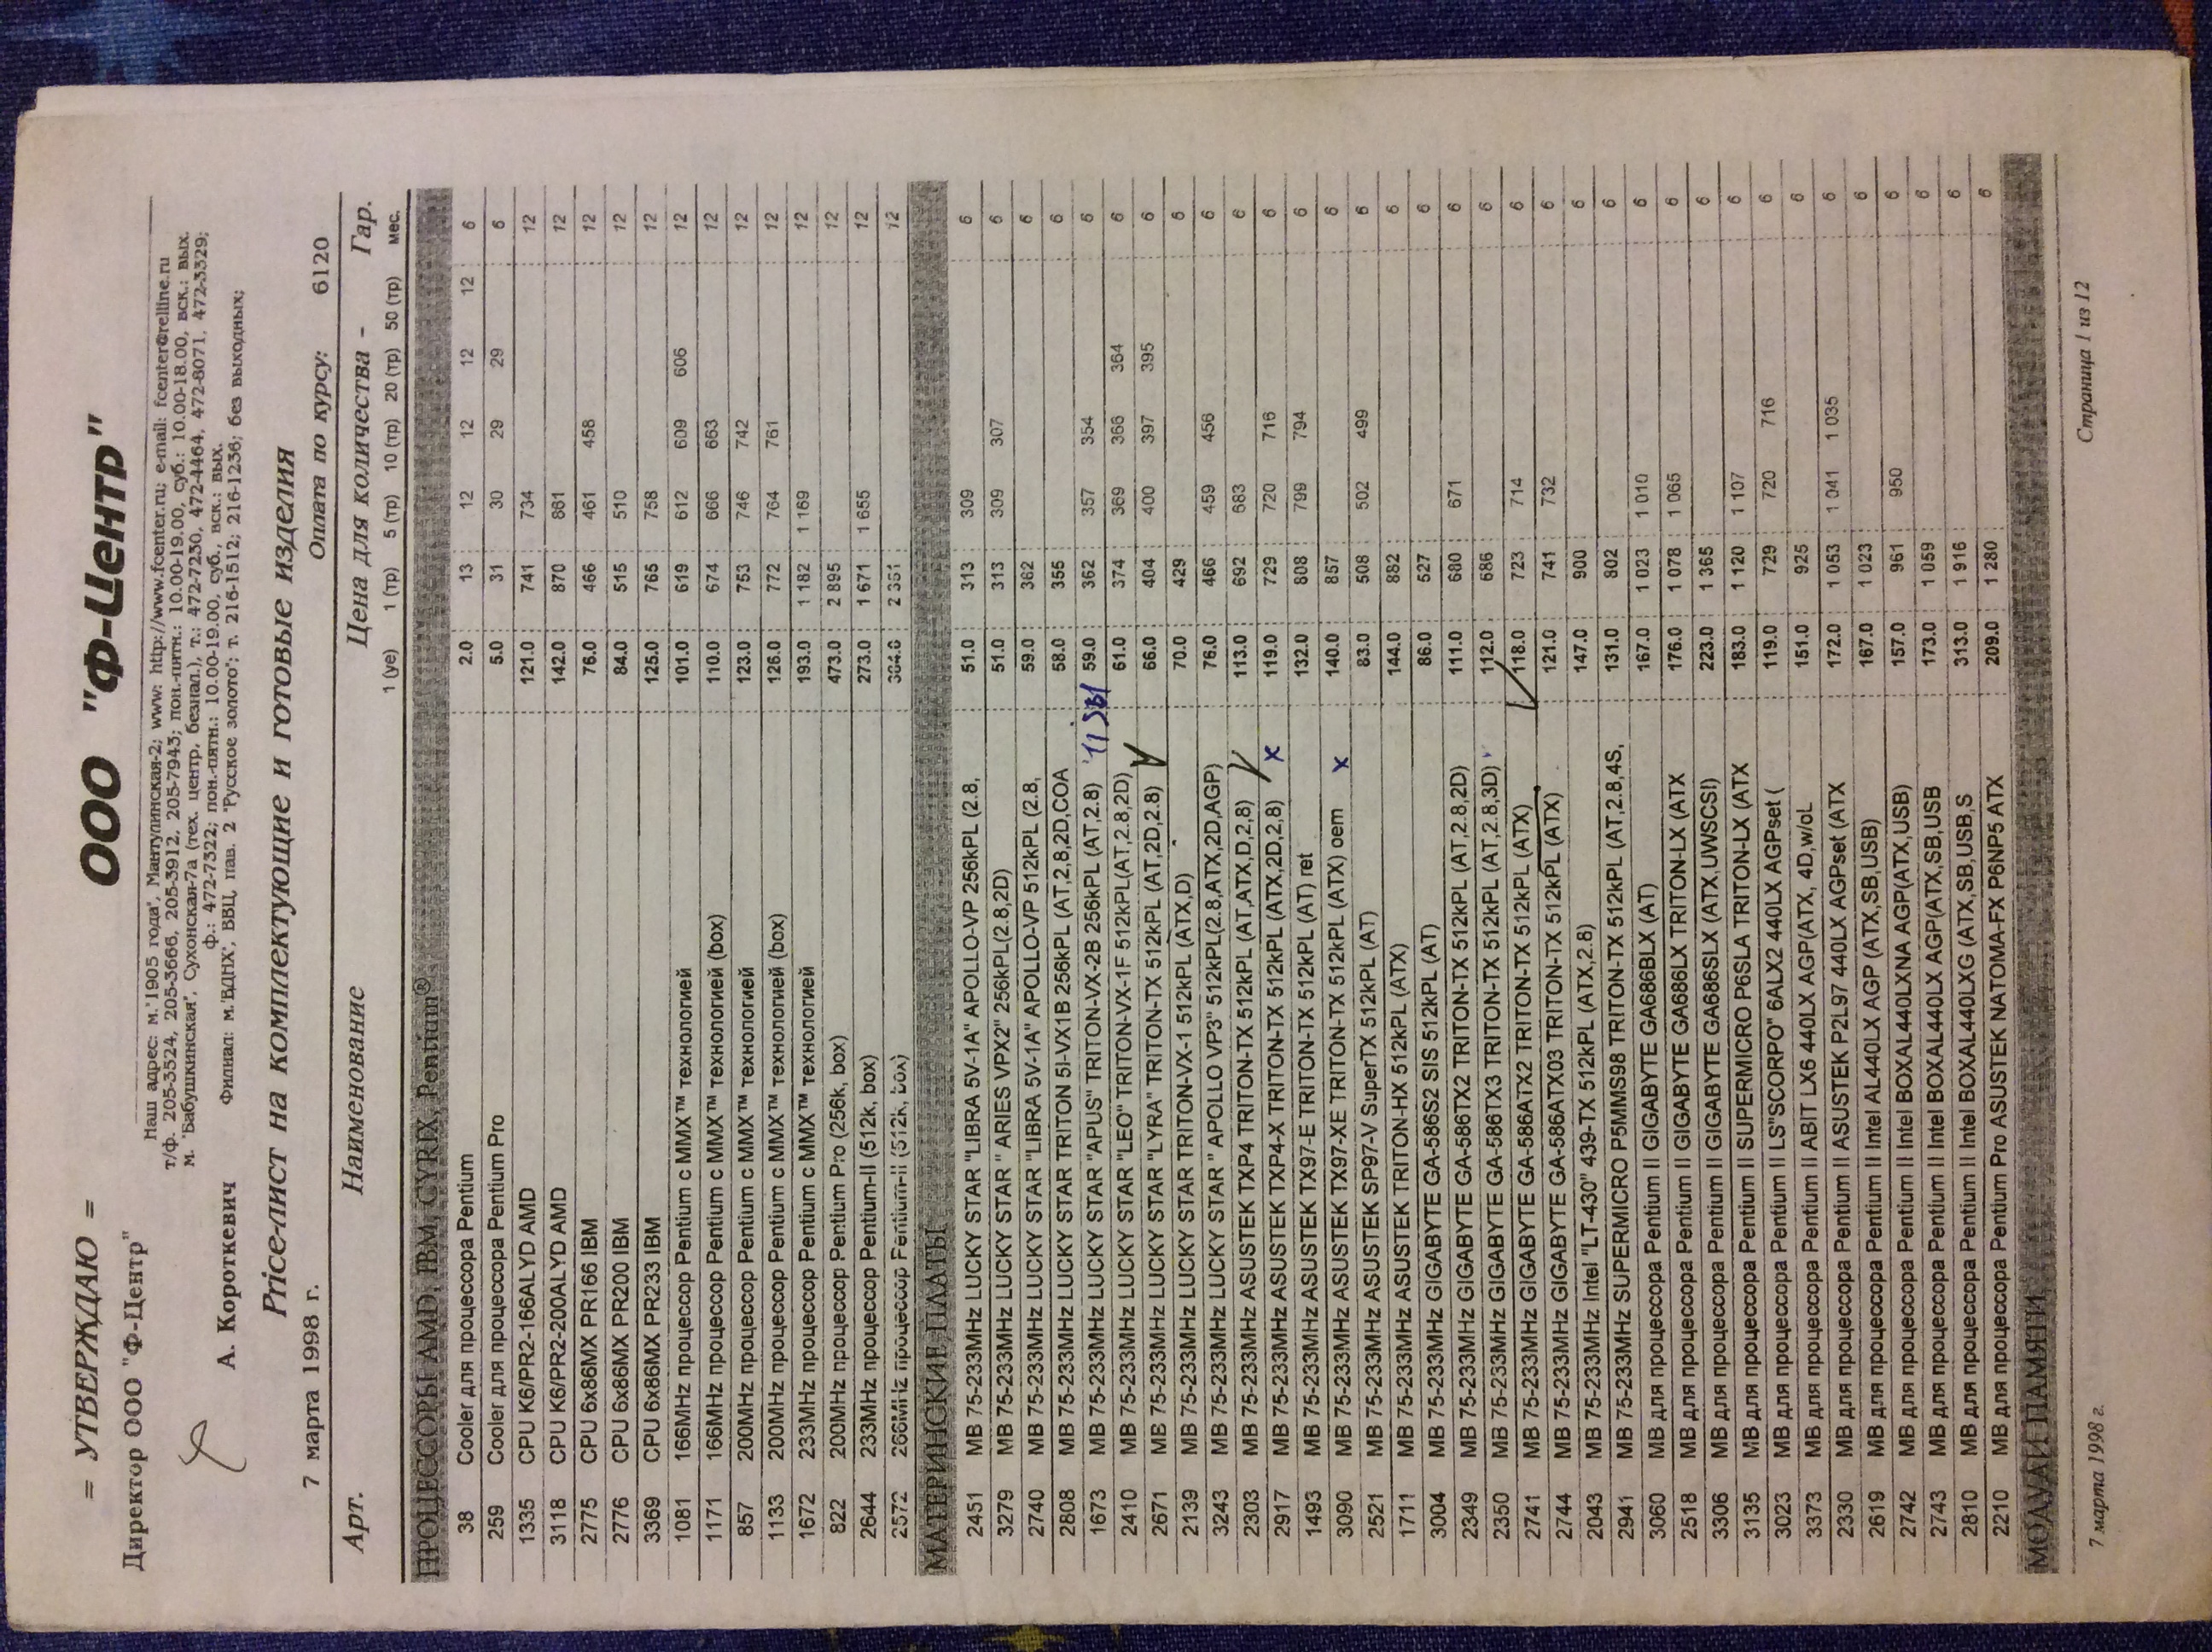 = УТВЕРЖДАЮ =
Директор ООО "Ф-Центр"
А. Короткевич
ООО "Ф-Центр"
Наш адрес: м."1905 года", Мантулинская-2; www: http://www.fcenter.ru; e-mail: fcenter@relline.ru
т/ф. 205-3524, 205-3666, 205-3912, 205-7943; пон.-пятн.: 10.00-19.00, суб.: 10.00-18.00, вск.: вых.
м. "Бабушкинская", Сухонская-7а (тех. центр, безнал.), т.: 472-7230, 472-4464, 472-8071, 472-3329;
ф.: 472-7322; пон.-пятн.: 10.00-19.00, суб., вск.: вых.
Филиал: м."ВДНХ", ВВЦ, пав. 2 "Русское золото"; т. 216-1512; 216-1236; без выходных;
Price-лист на комплектующие и готовые изделия
7 марта 1998 г. Оплата по курсу: 6120
Арт. Наименование Цена для количества - Гар.
1 (уе) 1 (тр) 5 (тр) 10 (тр) 20 (тр) 50 (тр) мес.
ПРОЦЕССОРЫ AMD, IBM, CYRIX, Pentium®
38 Cooler для процессора Pentium 2.0 13 12 12 12 12 6
259 Cooler для процессора Pentium Pro 5.0 31 30 29 29 6
1335 CPU K6/PR2-166ALYD AMD 121.0 741 734 12
3118 CPU K6/PR2-200ALYD AMD 142.0 870 861 12
2775 CPU 6x86MX PR166 IBM 76.0 466 461 458 12
2776 CPU 6x86MX PR200 IBM 84.0 515 510 12
3369 CPU 6x86MX PR233 IBM 125.0 765 758 12
1081 166MHz процессор Pentium с MMX™ технологией 101.0 619 612 609 606 12
1171 166MHz процессор Pentium с MMX™ технологией (box) 110.0 674 666 663 12
857 200MHz процессор Pentium с MMX™ технологией 123.0 753 746 742 12
1133 200MHz процессор Pentium с MMX™ технологией (box) 126.0 772 764 761 12
1672 233MHz процессор Pentium с MMX™ технологией 193.0 1 182 1 169 12
822 200MHz процессор Pentium Pro (256k, box) 473.0 2 895 12
2644 233MHz процессор Pentium-II (512k, box) 273.0 1 671 1 655 12
2572 266MHz процессор Pentium-II (512k, box) 12
МАТЕРИНСКИЕ ПЛАТЫ
2451 MB 75-233MHz LUCKY STAR "LIBRA 5V-1A" APOLLO-VP 256kPL (2.8, 51.0 313 309 6
3279 MB 75-233MHz LUCKY STAR " ARIES VPX2" 256kPL(2.8,2D) 51.0 313 309 307 6
2740 MB 75-233MHz LUCKY STAR "LIBRA 5V-1A" APOLLO-VP 512kPL (2.8, 59.0 362 6
2808 MB 75-233MHz LUCKY STAR TRITON 5I-VX1B 256kPL (AT,2,8,2D,COA 58.0 355 6
1673 MB 75-233MHz LUCKY STAR "APUS" TRITON-VX-2B 256kPL (AT,2.8) 59.0 362 357 354 6
2410 MB 75-233MHz LUCKY STAR "LEO" TRITON-VX-1F 512kPL(AT,2.8,2D) 61.0 374 369 366 364 6
2671 MB 75-233MHz LUCKY STAR "LYRA" TRITON-TX 512kPL (AT,2D,2.8) 66.0 404 400 397 395 6
2139 MB 75-233MHz LUCKY STAR TRITON-VX-1 512kPL (ATX,D) 70.0 429 6
3243 MB 75-233MHz LUCKY STAR " APOLLO VP3" 512kPL(2.8,ATX,2D,AGP) 76.0 466 459 456 6
2303 MB 75-233MHz ASUSTEK TXP4 TRITON-TX 512kPL (AT,ATX,D,2,8) 113.0 692 683 6
2917 MB 75-233MHz ASUSTEK TXP4-X TRITON-TX 512kPL (ATX,2D,2,8) x 119.0 729 720 716 6
1493 MB 75-233MHz ASUSTEK TX97-E TRITON-TX 512kPL (AT) ret 132.0 808 799 794 6
3090 MB 75-233MHz ASUSTEK TX97-XE TRITON-TX 512kPL (ATX) oem x 140.0 857 6
2521 MB 75-233MHz ASUSTEK SP97-V SuperTX 512kPL (AT) 83.0 508 502 499 6
1711 MB 75-233MHz ASUSTEK TRITON-HX 512kPL (ATX) 144.0 882 6
3004 MB 75-233MHz GIGABYTE GA-586S2 SIS 512kPL (AT) 86.0 527 6
2349 MB 75-233MHz GIGABYTE GA-586TX2 TRITON-TX 512kPL (AT,2.8,2D) 111.0 680 671 6
2350 MB 75-233MHz GIGABYTE GA-586TX3 TRITON-TX 512kPL (AT,2.8,3D) 112.0 686 6
2741 MB 75-233MHz GIGABYTE GA-586ATX2 TRITON-TX 512kPL (ATX) 118.0 723 714 6
2744 MB 75-233MHz GIGABYTE GA-586ATX03 TRITON-TX 512kPL (ATX) 121.0 741 732 6
2043 MB 75-233MHz Intel "LT-430" 439-TX 512kPL (ATX,2.8) 147.0 900 6
2941 MB 75-233MHz SUPERMICRO P5MMS98 TRITON-TX 512kPL (AT,2.8,4S, 131.0 802 6
3060 MB для процессора Pentium II GIGABYTE GA686BLX (AT) 167.0 1 023 1 010 6
2518 MB для процессора Pentium II GIGABYTE GA686LX TRITON-LX (ATX 176.0 1 078 1 065 6
3306 MB для процессора Pentium II GIGABYTE GA686SLX (ATX,UWSCSI) 223.0 1 365 6
3135 MB для процессора Pentium II SUPERMICRO P6SLA TRITON-LX (ATX 183.0 1 120 1 107 6
3023 MB для процессора Pentium II LS"SCORPO" 6ALX2 440LX AGPset ( 119.0 729 720 716 6
3373 MB для процессора Pentium II ABIT LX6 440LX AGP(ATX, 4D,w/oL 151.0 925 6
2330 MB для процессора Pentium II ASUSTEK P2L97 440LX AGPset (ATX 172.0 1 053 1 041 1 035 6
2619 MB для процессора Pentium II Intel AL440LX AGP (ATX,SB,USB) 167.0 1 023 6
2742 MB для процессора Pentium II Intel BOXAL440LXNA AGP(ATX,USB) 157.0 961 950 6
2743 MB для процессора Pentium II Intel BOXAL440LX AGP(ATX,SB,USB 173.0 1 059 6
2810 MB для процессора Pentium II Intel BOXAL440LXG (ATX,SB,USB,S 313.0 1 916 6
2210 MB для процессора Pentium Pro ASUSTEK NATOMA-FX P6NP5 ATX 209.0 1 280 6
МОДУЛИ ПАМЯТИ
7 марта 1998 г. Страница 1 из 12